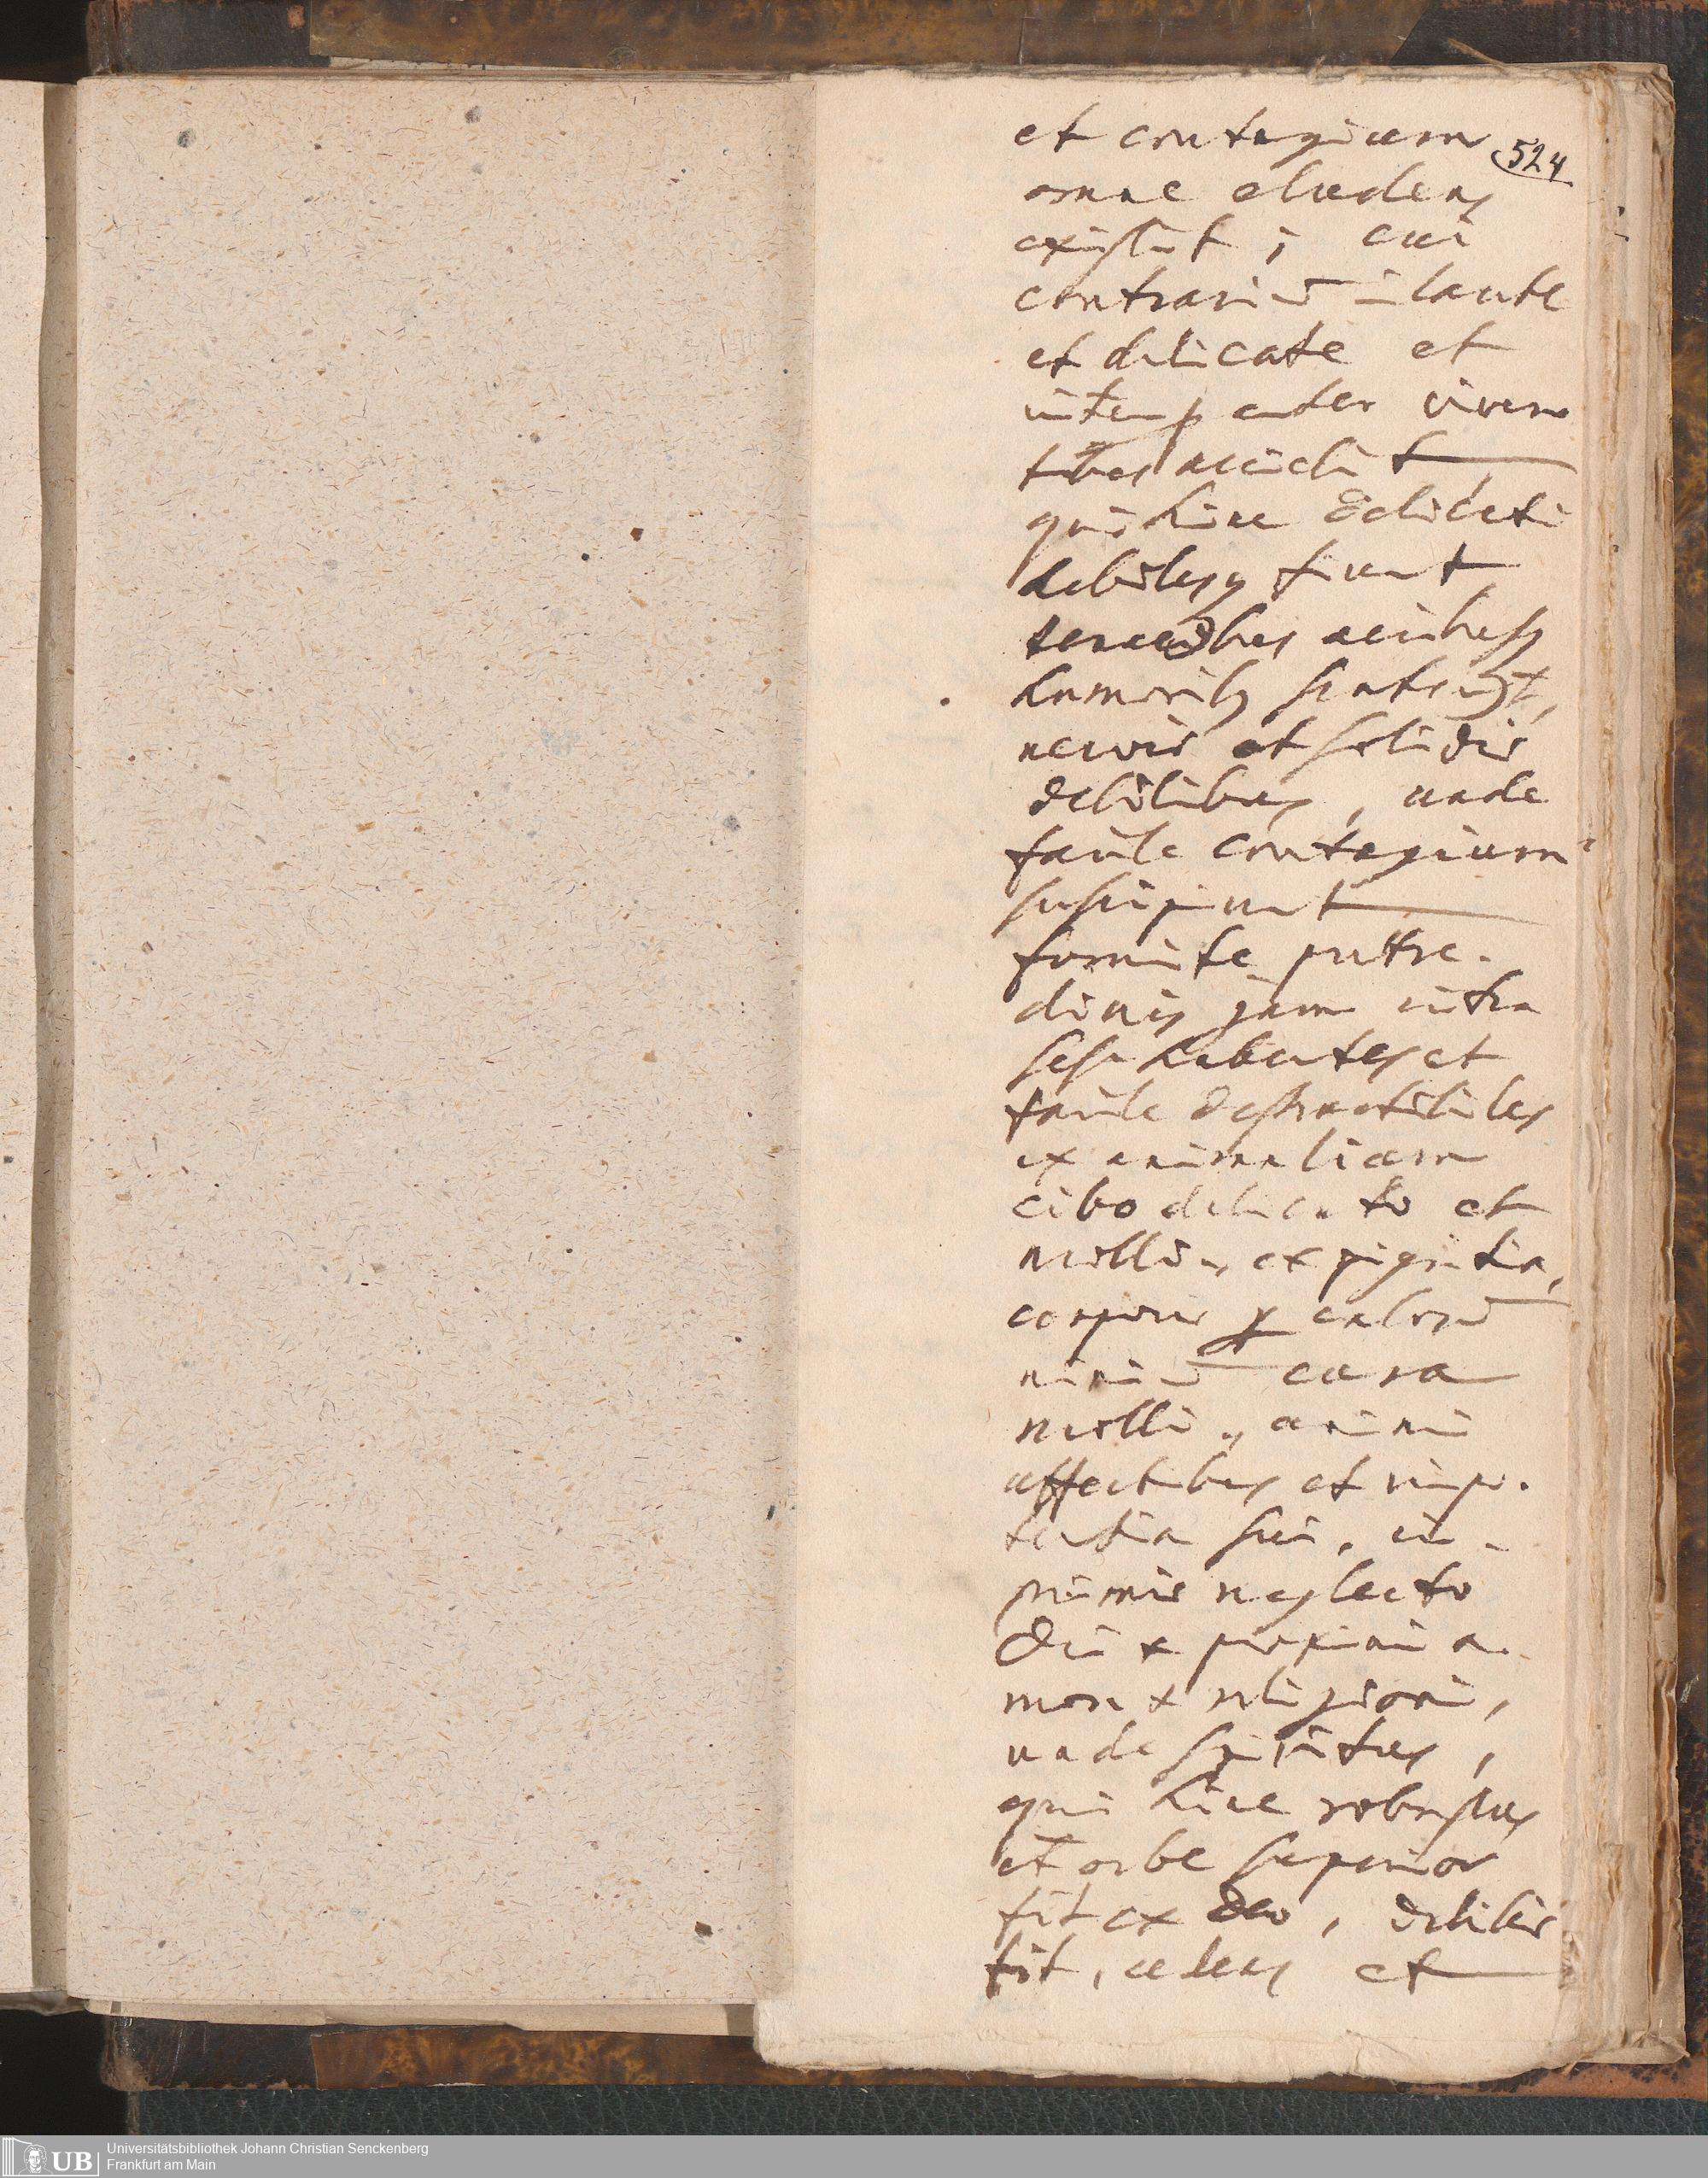 et contagium
524
omne eludens
existit; cui
contrariū ī laute
et delicate et
intemperāter viven
tibus accidit,
qui hinc delicati
debilesq fiunt
acribusq
humoribq scatent,
nervis et solidis
debilibus, unde
facile contagium
suscipiunt
fomite putre-
dinis jam intra
sese habentes et
facile destructibiles
ex animalium
cibo delicato et
molli, ex pigritia,
corporis calorū
nimiū cura
molli, animi
affectibus et impo-
tentia sui, in-
primis neglecto
Dei & proximi a-
more & religioni,
unde spiritus,
qui hinc robustus
et orbe superior
fit ex deo, debilis
fit, et
Universitätsbibliothek Johann Christian Senckenberg
Frankfurt am Main
UB